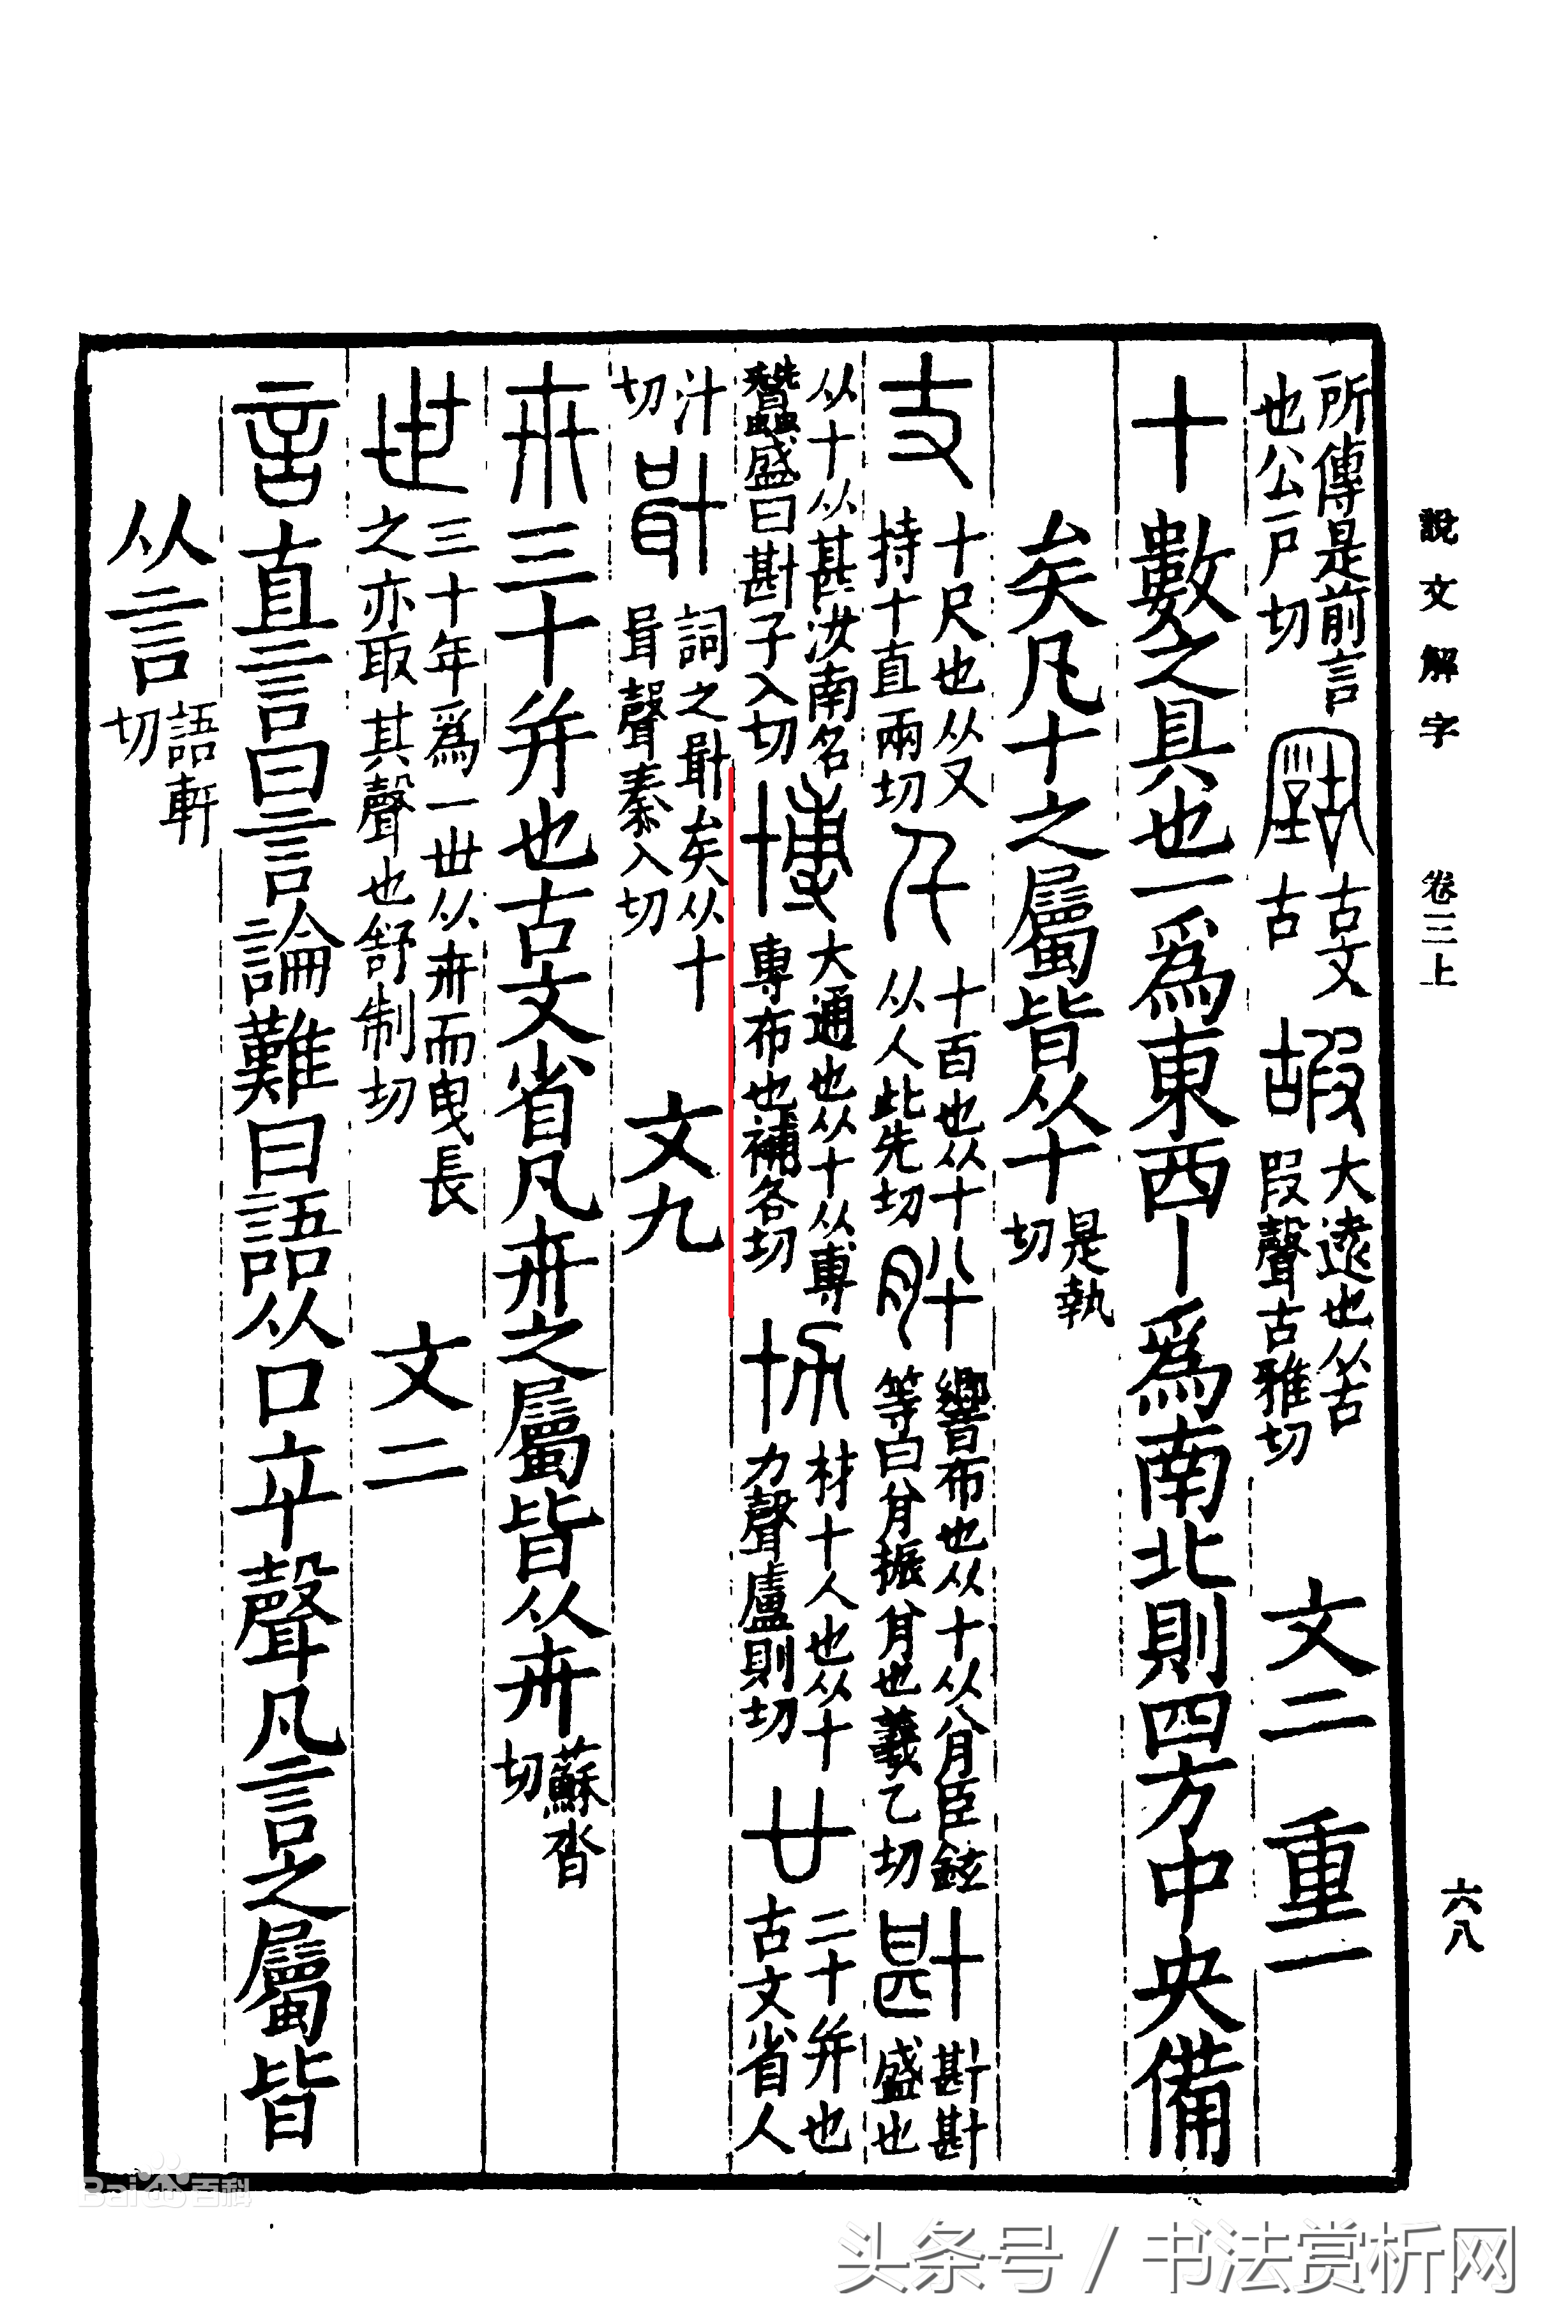 說文解字 卷三上 六八
所傳是前言
也公戶切
古文
古
嘏
大遠也从古
叚聲古雅切
文二 重一
十 數之具也一爲東西丨爲南北則四方中央備
矣凡十之屬皆从十
是執
切
丈
十尺也从又
持十直兩切
千
十百也从十
从人此先切
肸
響布也从十从㒫臣鉉
等曰㒫振㒫也羲乙切
斟斟
盛也
从十从甚汝南名
蠶盛曰子入切
博
大通也从十从尃
專布也補各切
材十人也从十
力聲盧則切
廿
二十并也
古文省人
汁
切
詞之甚矣从十
咠聲秦入切
文九
卅 三十并也古文省凡卅之屬皆从卅
蘇沓
切
世
三十年爲一世从卅而曳長
之亦取其聲也舒制切
文二
言 直言曰言論難曰語从口䇂聲凡言之屬皆
从言
語軒
切
Bai百科
头条号 / 书法赏析网